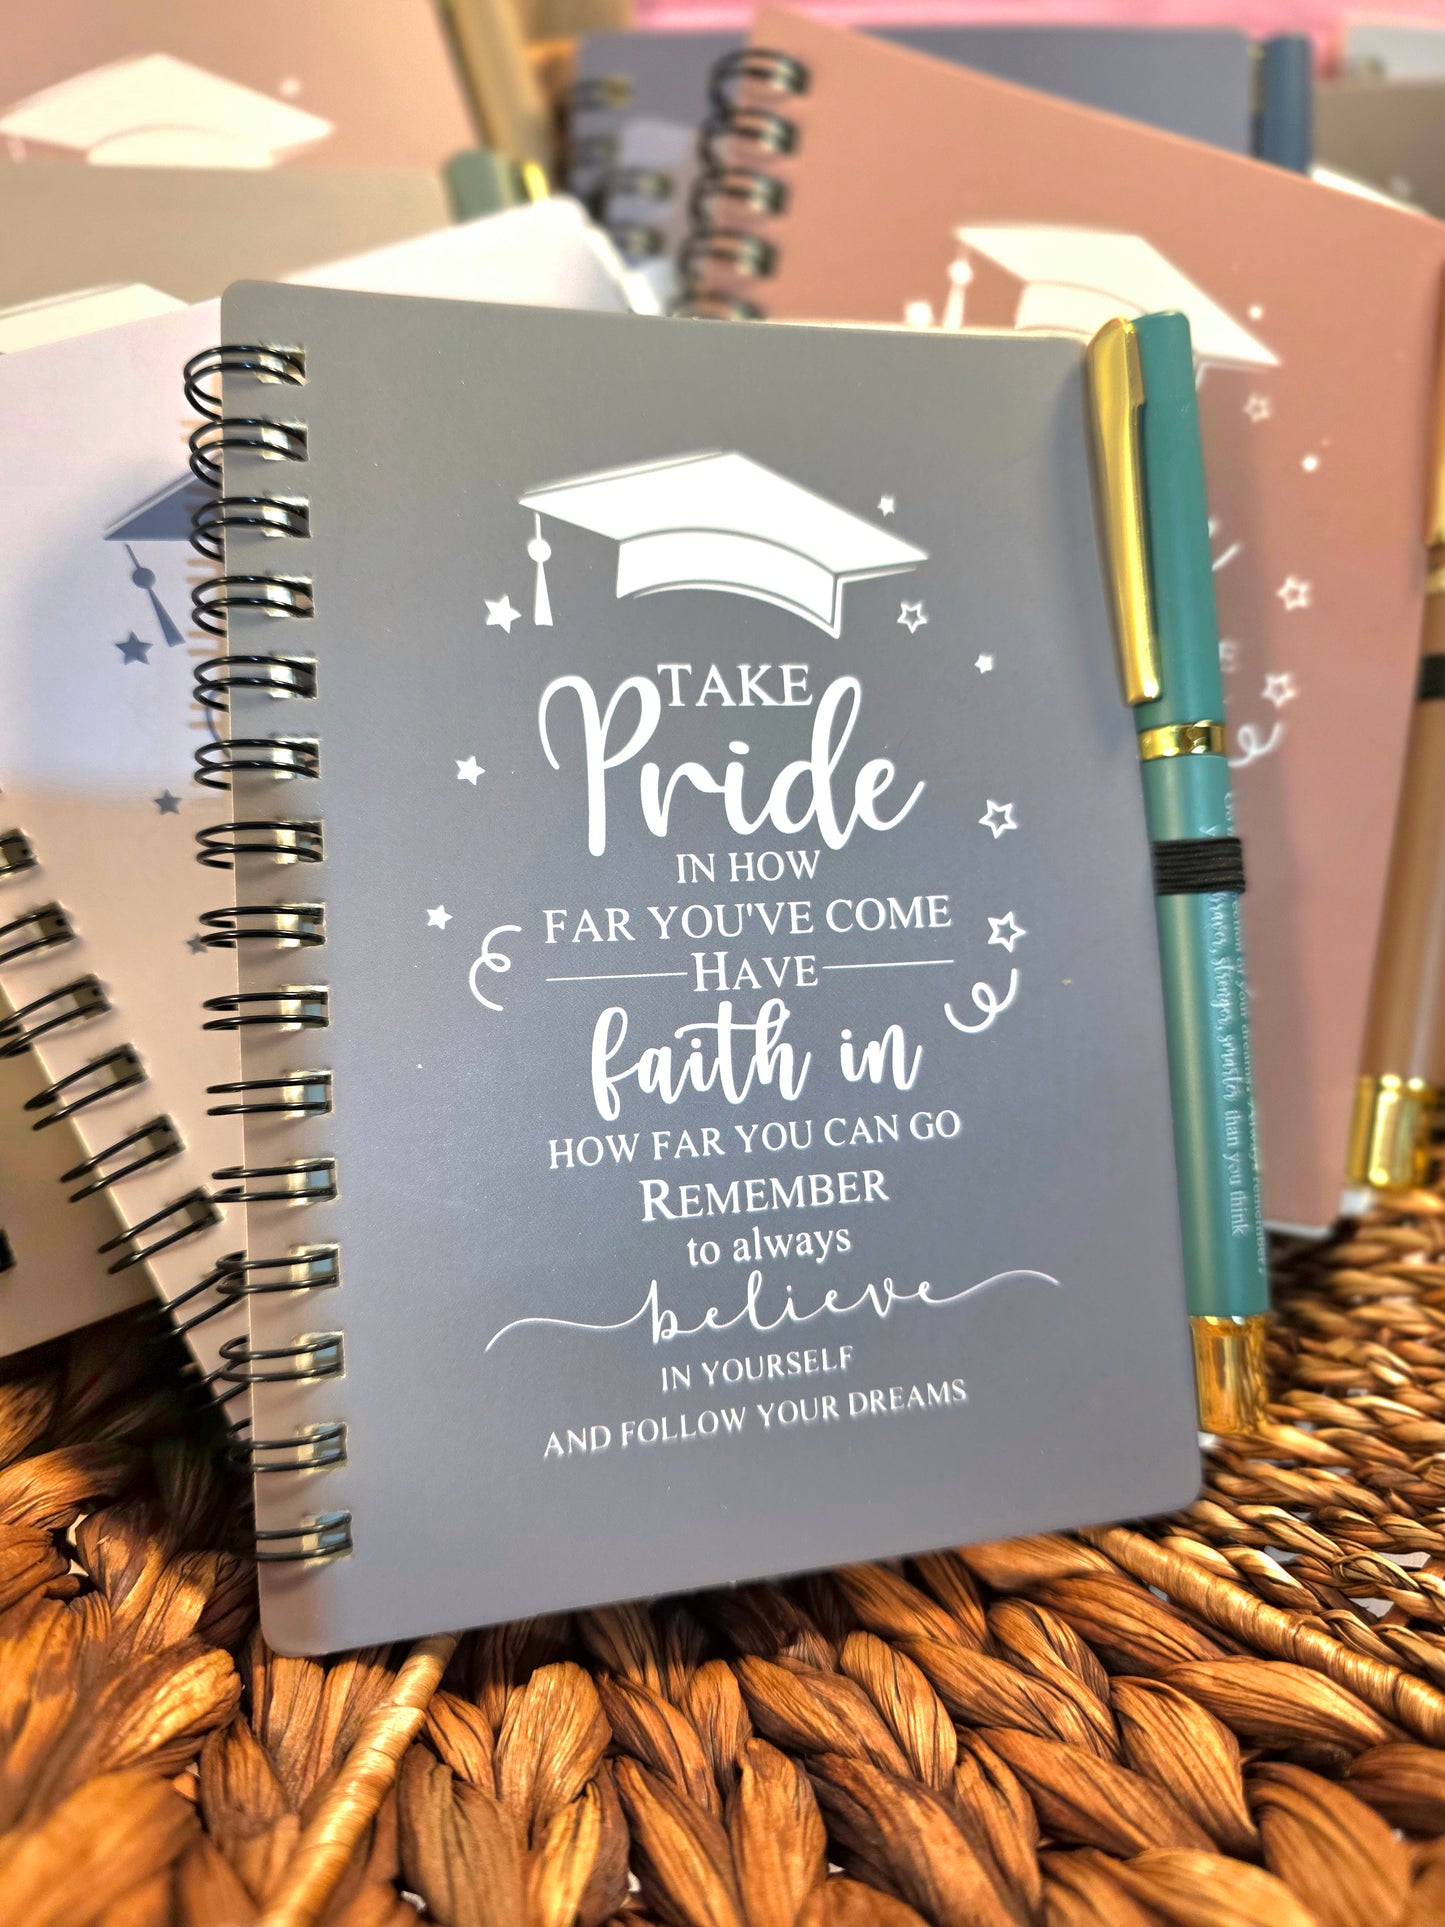 TAKE
Pride
IN HOW
FAR YOU'VE COME
HAVE
faith in
HOW FAR YOU CAN GO
REMEMBER
to always
believe
IN YOURSELF
AND FOLLOW YOUR DREAMS
of your dreams! Always remember
stronger, smarter than you think